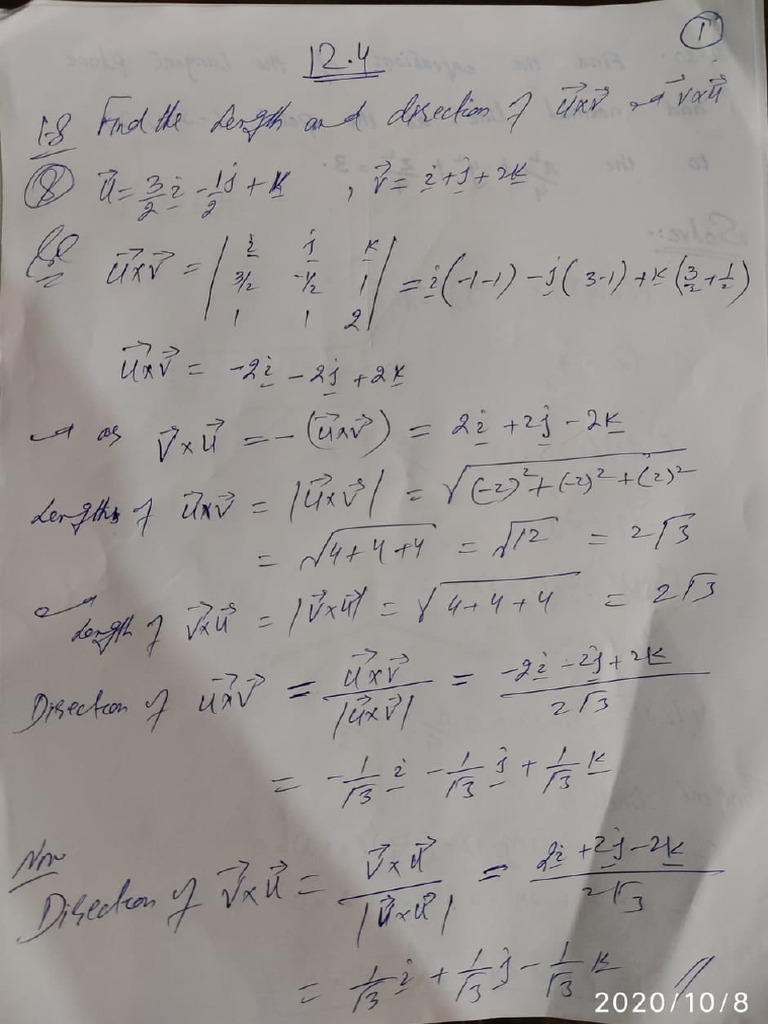 ①
12.4
1-8 Find the Length and direction of u⃗×v⃗ and v⃗×u⃗
⑧ u⃗ = 3/2 i - 1/2 j + k , v⃗ = i + j + 2k
Sol u⃗×v⃗ = | i j k ; 3/2 -1/2 1 ; 1 1 2 | = i(-1-1) - j(3-1) + k(3/2 + 1/2)
u⃗×v⃗ = -2i - 2j + 2k
as v⃗×u⃗ = -(u⃗×v⃗) = 2i + 2j - 2k
Length of u⃗×v⃗ = |u⃗×v⃗| = √((-2)² + (-2)² + (2)²)
= √(4+4+4) = √12 = 2√3
Length of v⃗×u⃗ = |v⃗×u⃗| = √(4+4+4) = 2√3
Direction of u⃗×v⃗ = u⃗×v⃗ / |u⃗×v⃗| = (-2i - 2j + 2k) / 2√3
= -1/√3 i - 1/√3 j + 1/√3 k
Now
Direction of v⃗×u⃗ = v⃗×u⃗ / |v⃗×u⃗| = (2i + 2j - 2k) / 2√3
= 1/√3 i + 1/√3 j - 1/√3 k //
2020/10/8